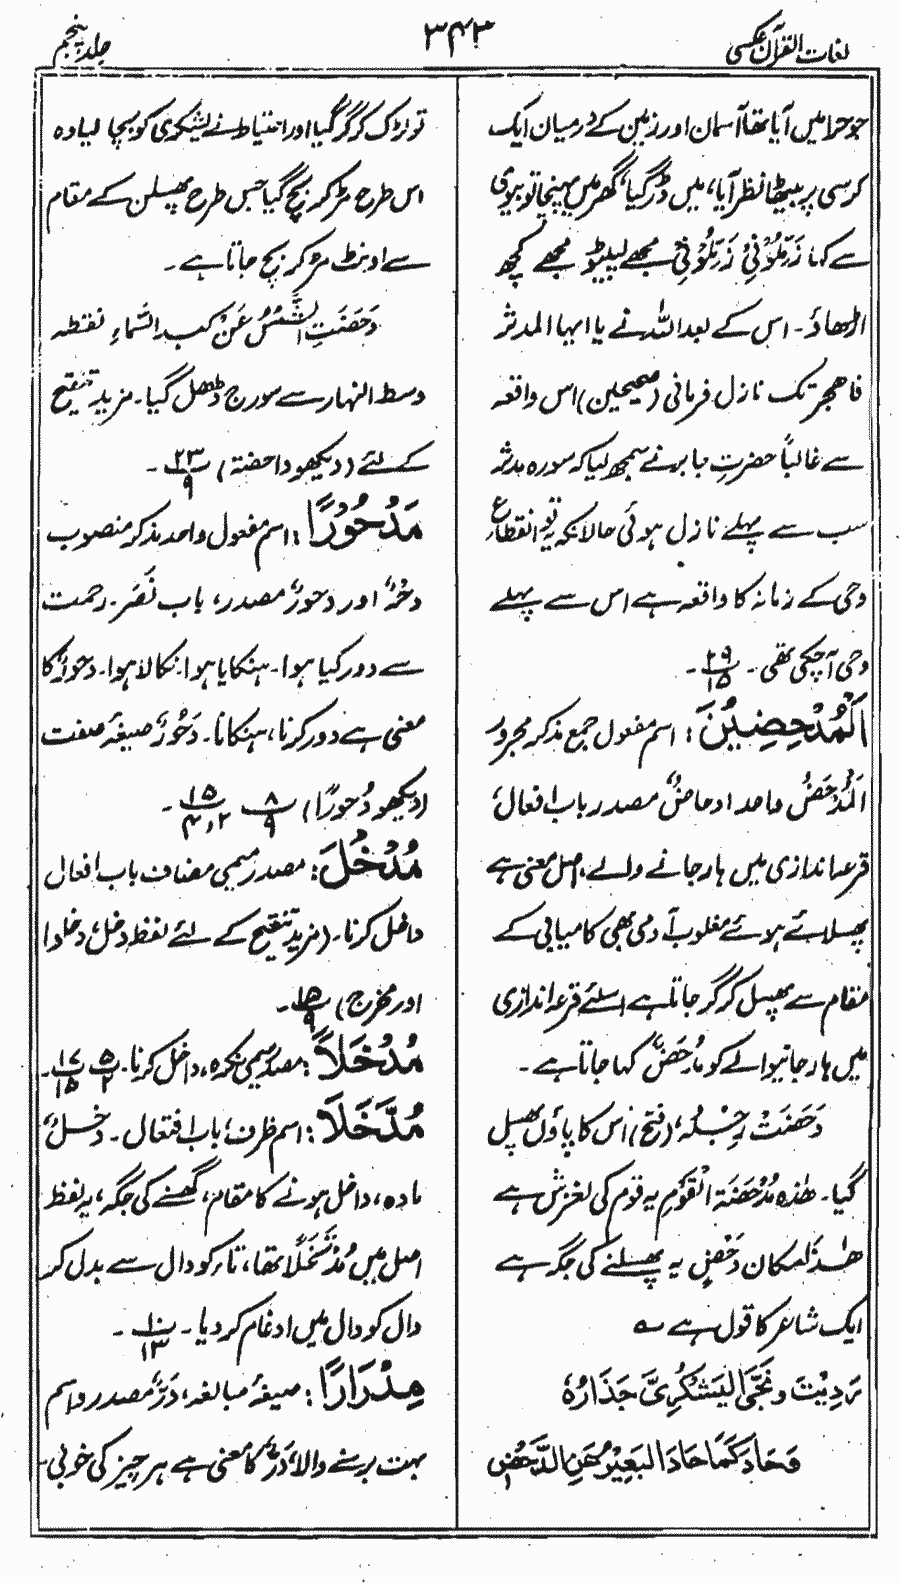 لغات القرآن عکسی
۳۴۳
جلد پنجم
جو حرا میں آیا تھا آسمان اور زمین کے درمیان ایک
کرسی پر بیٹھا نظر آیا، میں ڈر گیا، گھر میں پہنچا تو بیوی
سے کہا زَمِّلُوْنِیْ زَمِّلُوْنِیْ مجھے لپیٹو مجھے کچھ
اڑھاؤ۔ اس کے بعد اللہ نے یا ایہا المدثر
فاھجر تک نازل فرمائی (صحیحین) اس واقعہ
سے غالباً حضرت جابر نے سمجھ لیا کہ سورہ مدثر
سب سے پہلے نازل ہوئی حالانکہ یہ تو انقطاع
وحی کے زمانہ کا واقعہ ہے اس سے پہلے
وحی آچکی تھی۔ ۲۹/۱۵۔
اَلْمُدْحَضِیْنَ: اسم مفعول جمع مذکر مجرور
اَلْمُدْحَضُ واحد ادحاضٌ مصدر باب افعال،
قرعہ اندازی میں ہار جانے والے، اصل معنی ہے
پھسلائے ہوئے مغلوب آدمی بھی کامیابی کے
مقام سے پھسل کر گر جاتا ہے اسلئے قرعہ اندازی
میں ہار جانیوالے کو مُدْحَضٌ کہا جاتا ہے۔
دَحَضَتْ رِجْلُہٗ، (فتح) اس کا پاؤں پھسل
گیا۔ ھٰذہ مُدْحَضَۃُ الْقَوْمِ یہ قوم کی لغزش ہے
ھٰذا مکان دَحْضٍ یہ پھسلنے کی جگہ ہے
ایک شاعر کا قول ہے ؎
رَدِیْتَ ونَجَّی الیَشْکُرِیَّ حَذَارُہٗ
وَحَادَ کَمَا حَادَ البَعِیْرُ عَنِ الدَّحْضِ
تو لڑک کر گر گیا اور احتیاط نے یشکری کو بچا لیا وہ
اس طرح مڑ کر بچ گیا جس طرح پھسلن کے مقام
سے اونٹ مڑ کر بچ جاتا ہے۔
دَحَضَتِ الشَّمْسُ عَنْ کبد السَّمَاءِ نقطہ
وسط النہار سے سورج ڈھل گیا۔ مزید تنقیح
کے لئے (دیکھو داحضۃ) ۲۳/۹۔
مَدْحُوْرًا: اسم مفعول واحد مذکر منصوب
دحْرٌ اور دحورٌ مصدر، باب نَصَرَ۔ رحمت
سے دور کیا ہوا۔ ہنکایا ہوا۔ نکالا ہوا۔ دحورٌ کا
معنی ہے دور کرنا، ہنکانا۔ دَحُوْرٌ صیغۂ صفت
(دیکھو دُحورًا) ۸/۹ ۱۵/۲،۴۔
مُدْخَلَ: مصدر میمی مضاف باب افعال
داخل کرنا۔ (مزید تنقیح کے لئے لفظ دخل، دخلوا
اور مخرج) ۱۵/۹۔
مُدْخَلًا: مصدر میمی نکرہ، داخل کرنا۔ ۵/۲ ۱۷/۱۵۔
مُدَّخَلًا: اسم ظرف، باب افتعال۔ دخلٌ،
مادہ، داخل ہونے کا مقام، گھسنے کی جگہ، یہ لفظ
اصل میں مُدْتَخَلًا تھا، تاء کو دال سے بدل کر
دال کو دال میں ادغام کر دیا۔ ۱۰/۱۳۔
مِدْرَارًا: صیغۂ مبالغہ، دَرٌّ مصدر و اسم
بہت برسنے والا، دَرٌّ کا معنی ہے ہر چیز کی خوبی